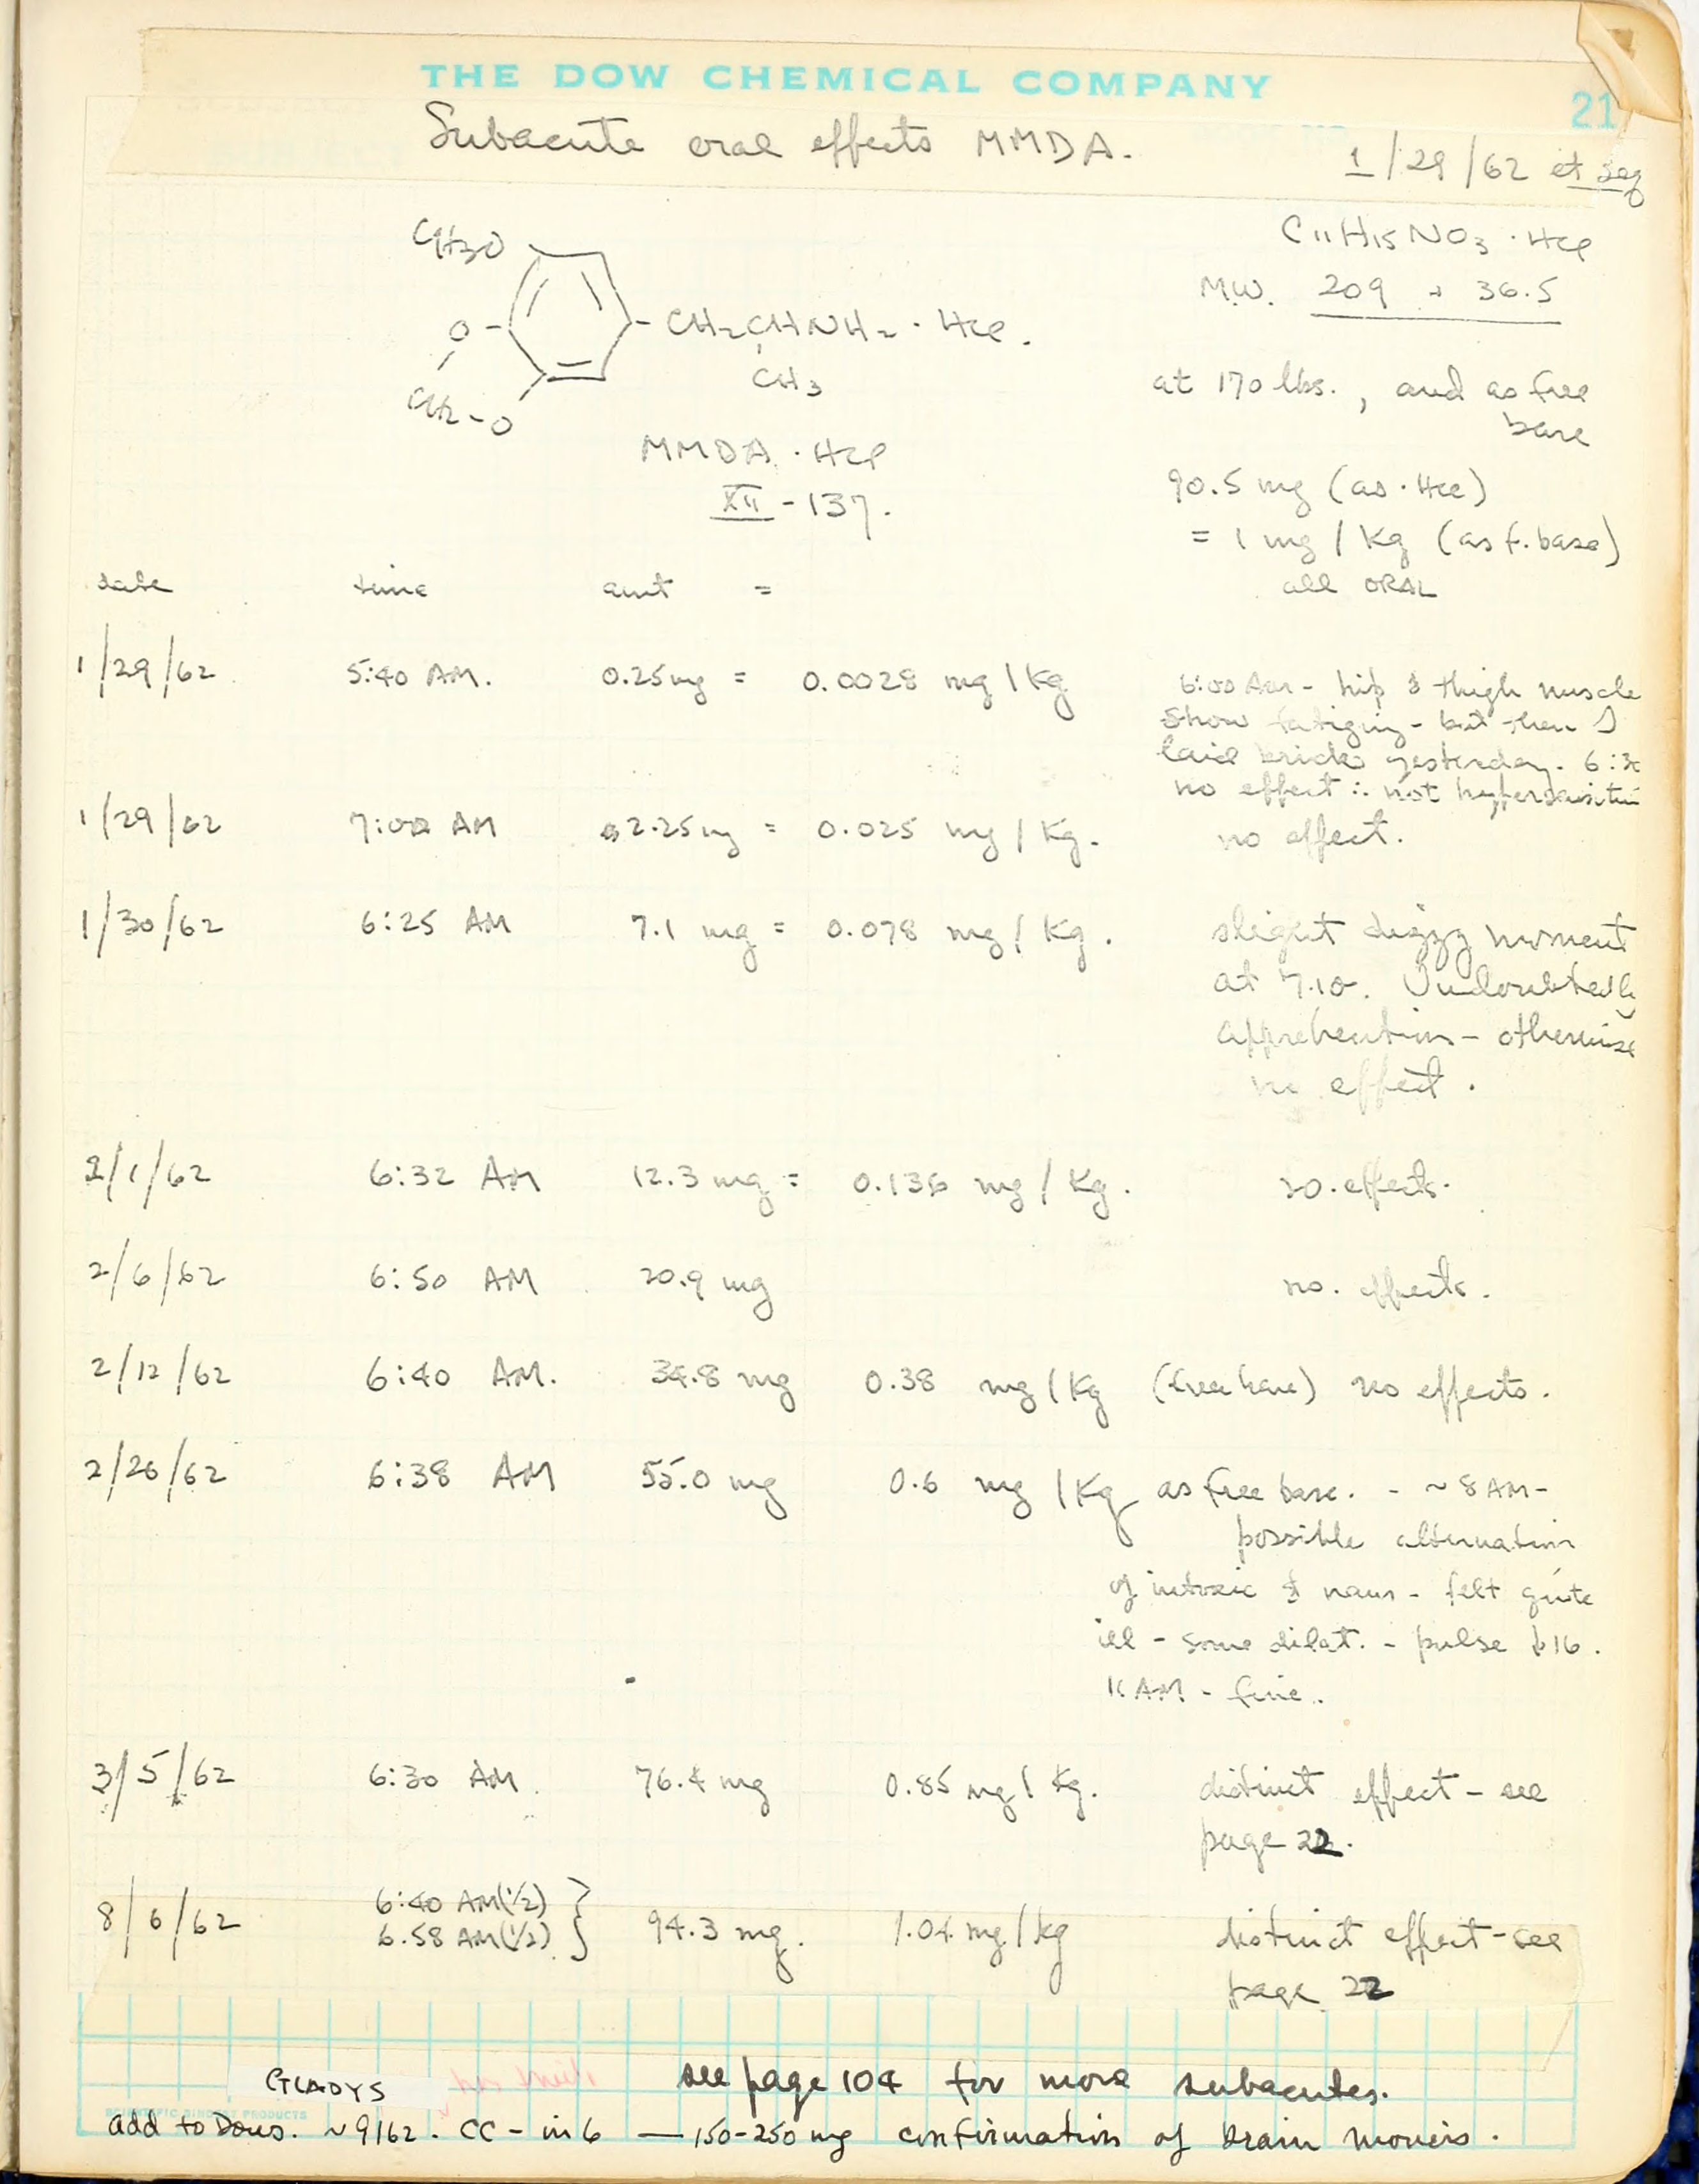 THE DOW CHEMICAL COMPANY
21
Subacute oral effects MMDA.
1/29/62 et seq
CH3O
O - CH2CHNH2 · HCl.
CH3
CH2-O
MMDA · HCl
XII - 137.
C11H15NO3 · HCl
M.W. 209 + 36.5
at 170 lbs., and as free
base
90.5 mg (as · HCl)
= 1 mg / Kg (as f. base)
all ORAL
date time amt =
1/29/62 5:40 AM. 0.25mg = 0.0028 mg/Kg 6:00 AM - hip & thigh muscle
show fatiguing - but then I
laid bricks yesterday. 6:30
no effect ∴ not hypersensitive
1/29/62 7:00 AM 2.25mg = 0.025 mg/Kg. no effect.
1/30/62 6:25 AM 7.1 mg = 0.078 mg/Kg. slight dizzy moment
at 7:10. Undoubtedly
apprehention - otherwise
no effect.
2/1/62 6:32 AM 12.3 mg = 0.136 mg/Kg. no. effects.
2/6/62 6:50 AM 20.9 mg no. effects.
2/12/62 6:40 AM. 34.8 mg 0.38 mg/Kg (free base) no effects.
2/26/62 6:38 AM 55.0 mg 0.6 mg/Kg as free base. - ~8 AM-
possible alternation
of intoxic & naus - felt quite
ill - some dilat. - pulse ↓16.
11 AM - fine.
3/5/62 6:30 AM. 76.4 mg 0.85 mg/Kg. distinct effect - see
page 22.
8/6/62 6:40 AM(1/2) } 94.3 mg. 1.04 mg/kg distinct effect - see
6:58 AM(1/2) page 22
GLADYS see page 104 for more subacutes.
SCIENTIFIC BINDERY PRODUCTS
add to Dows. ~9/62. CC - in 6 — 150-250 mg confirmation of brain movies.